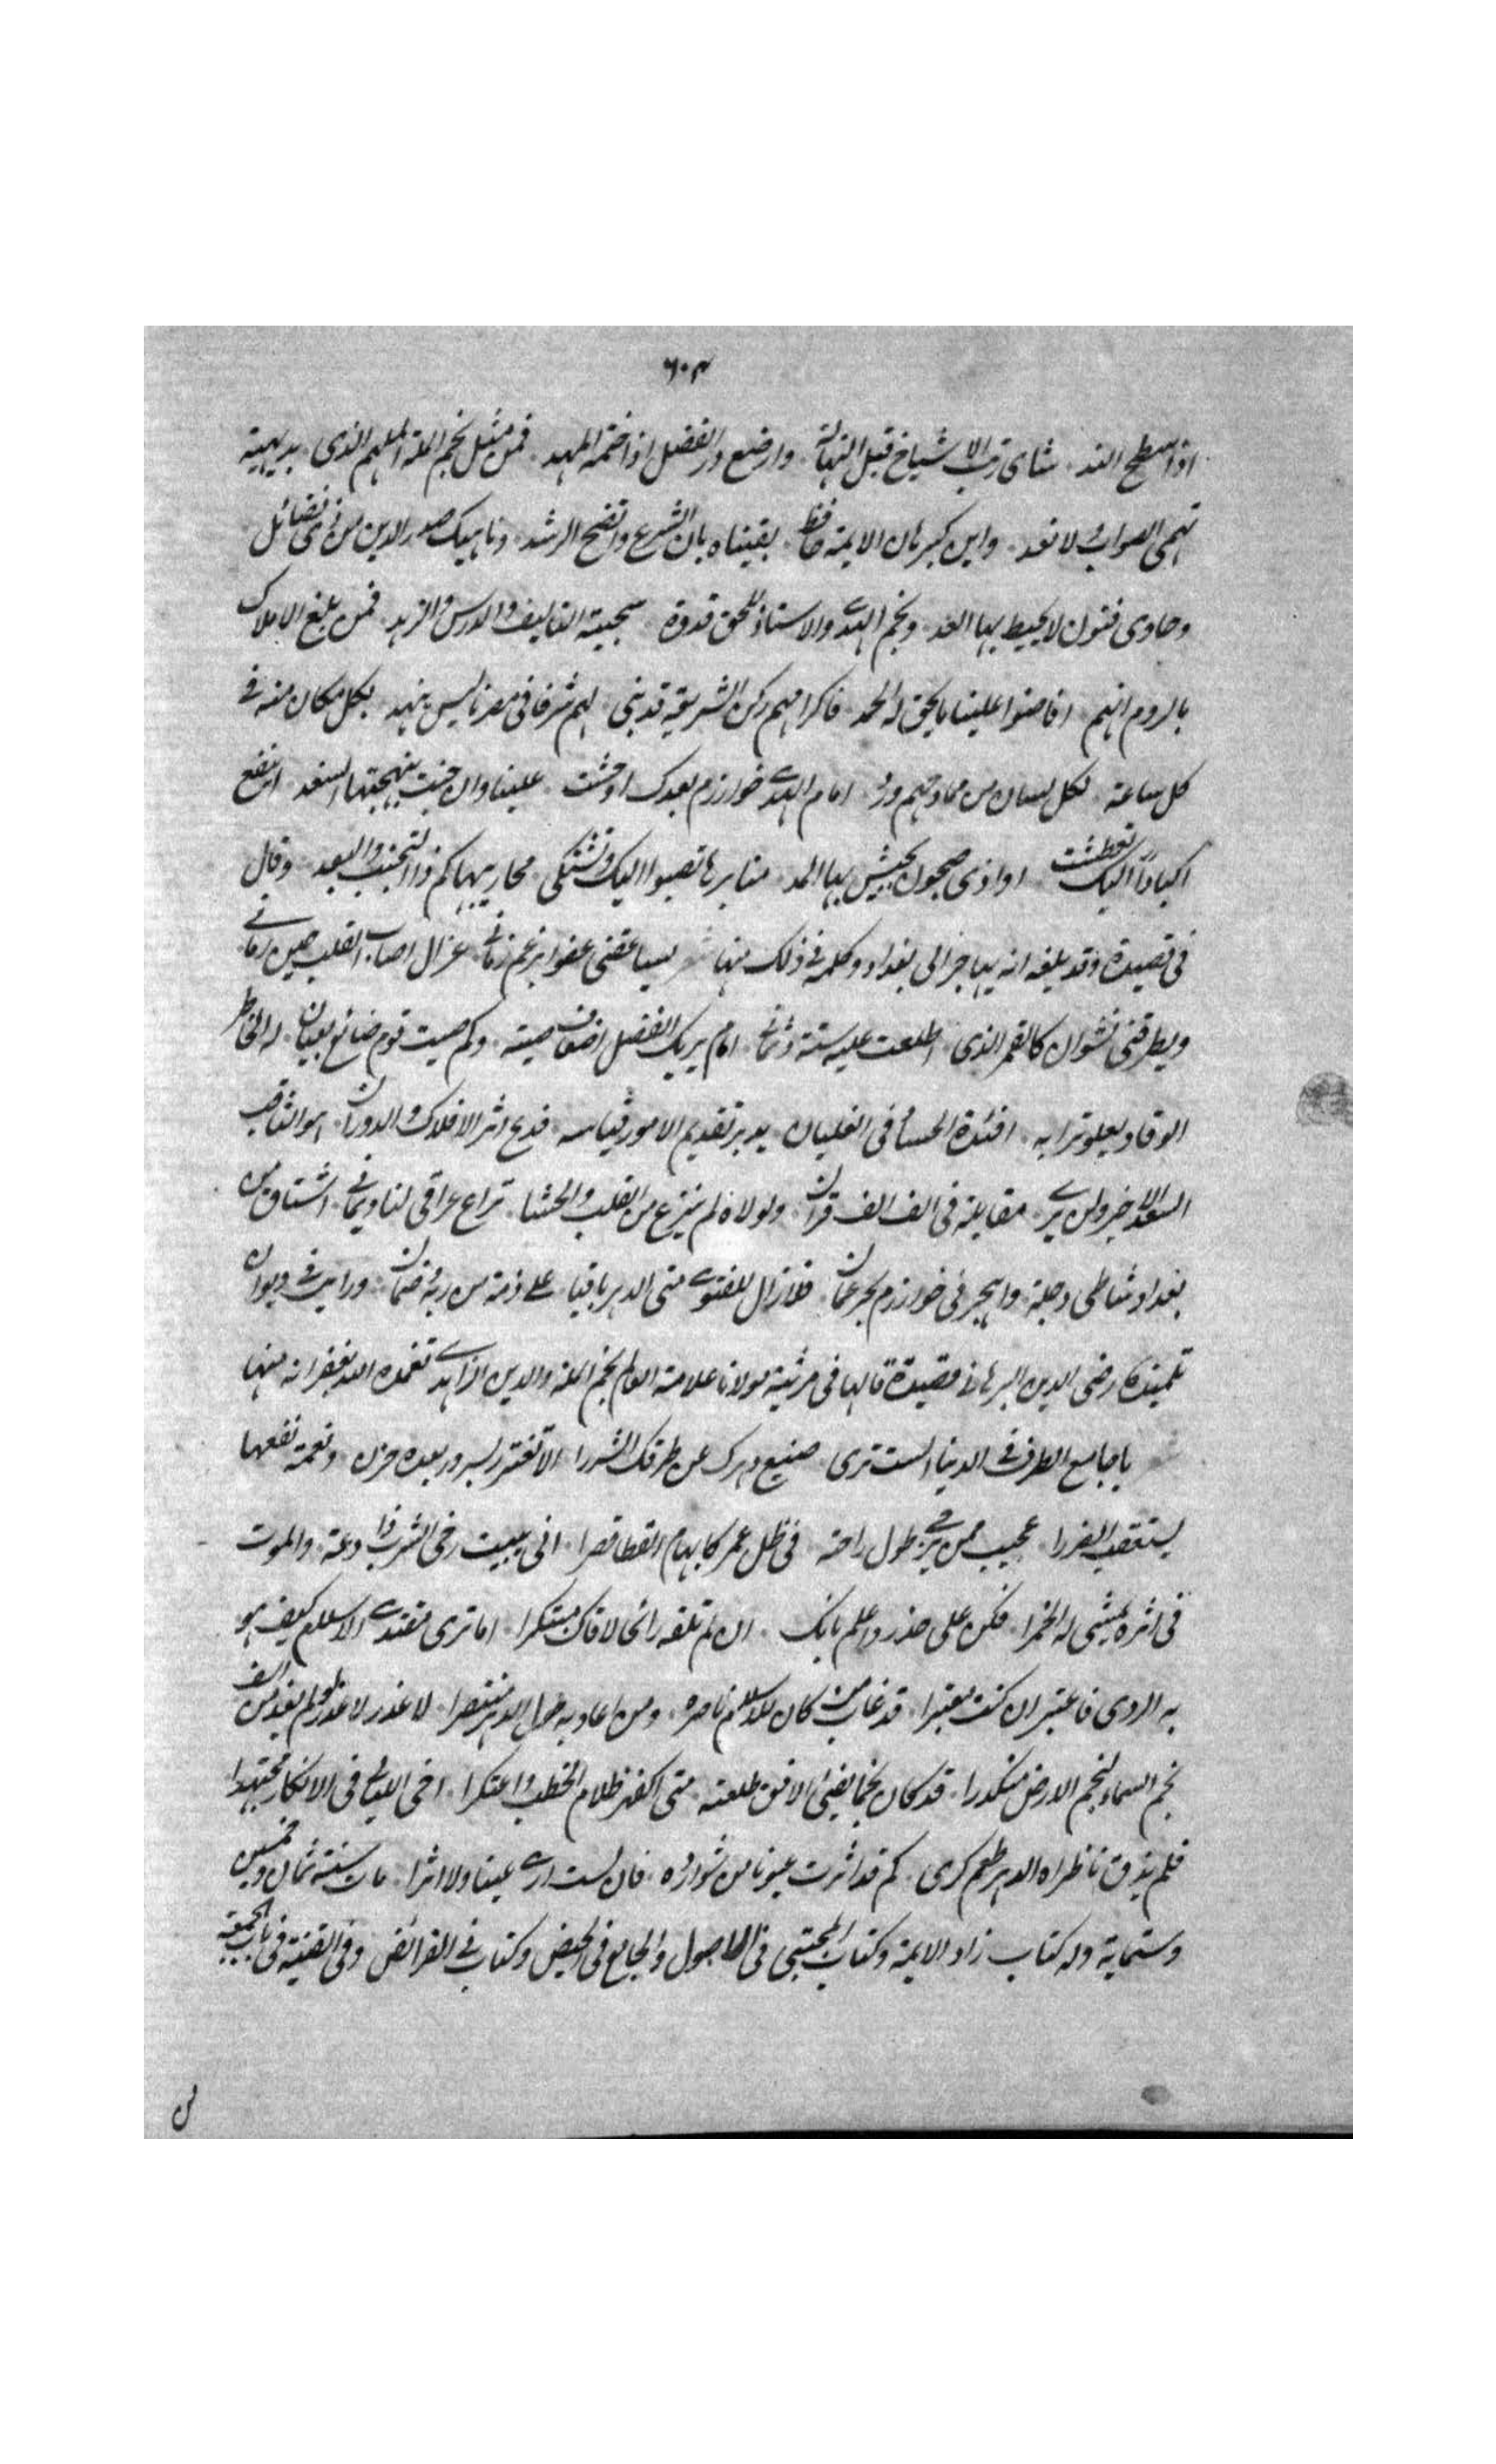 ٦٠٣
اذا سطح الند شأى رتب الاشياخ قبل وارضع در الفضل اذا ضمه المهد فمن مثل نجم الملة الملهم الذى بديهية
تهمى الصواب ولا تعد واين كبرهان الايمة حافظ بقيناه بان الشرع واتضح الرشد وناهيك صدر الدين من ذى فضائل
وحاوى فنون لا يحيط بها العد ونجم الهدى والاستاذ للحق قدوة سجيته التاليف والدرس والزهد فمن يبلغ الاملاك
بالروم انهم افاضوا علينا ما يحق له الحمد فاكرامهم ركن الشريعة قد بنى لهم شرفا فى مصرنا ليس ينهد بكل مكان منه فى
كل ساعة لكل لسان من ممادحهم ورد امام الهدى خوارزم بعدك اوحشت علينا وان السغد انتقع
اكبادا اليك تعطشت اواذى جيحون يجيش بها المد منابرها تصبوا اليك وتشتكى محاريبها كم ذا التجنب والبعد وقال
فى قصيدة وقد بلغه انه يهاجر الى بغداد وكلمه فى ذلك منها سيباعقنى عفوا برغم زمانى غزال اصاب القلب حين رمانى
ويطرقنى نشوان كالقمر الذى اطلعت عليه ستة وثمانى امام يريك الفضل اضعاف صيته وكم صيت قوم ضائع بعيان له الخاطر
الوقاد يعلو ترابه افئدة الحساد فى الغليان يدبر تقديم الامور قياسه فدع اثر الافلاك والدوران هو الثاقب
السعد الاخير ولن يرى مقابله فى الف الف قران ولولاه لم ينزع من القلب والحشا نزاع عراقى لنا ويمانى اشتاق من
بغداد شاطى دجلة وابحر فى خوارزم بحر عمان فلا زال للفتوى متى الدهر باقيا على ذمة من ربه وضمان ورايت فى ديوان
تلميذه رضى الدين البرهانى قصيدة قالها فى مرثية مولانا علامة العالم نجم الملة والدين الزاهدى تغمده الله بغفرانه منها
يا جامع الطرف فى الدنيا الست ترى صنيع دهرك عن طرفك الشررا الا تغترر بسرور بعده حزن ونعمة نفعها
يستعقب الضررا عجيب ممن يرجى طول راحة فى ظل عمر كابهام القطا قصرا انى يبيت رخى الشرب ذا دعة والموت
فى اثره يمشى له الخمرا فكن على حذر واعلم بانك ان لم تلقه رائحا لاقاك مبتكرا اما ترى مقتدى الاسلام كيف هو
به الردى فاعتبر ان كنت معتبرا قد غاب من كان للاسلام ناصره ومن اعاديه طوال الدهر منتصرا لا غذر لا غدر لو لم يغد من اسف
نجم السماء لنجم الارض منكدرا قد كان نجما يضئ الافق طلعته متى اكفهر ظلام الخطب واعتكرا احى الليالى فى الافكار مجتهدا
فلم يذق ناظراه الدهر طعم كرى كم قد اثرت عيونا من شوارده فان لست ارى عينا ولا اثرا مات سنة ثمان وخمسين
وستماية وله كتاب زاد الايمة وكتاب المجتبى فى الاصول والجامع فى الحيض وكتاب فى الفرائض وفى القنية فى باب الجمعة